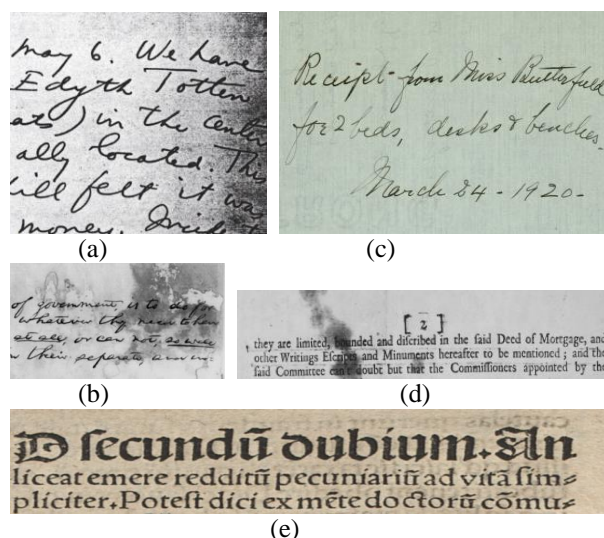 may 6. We have
Edyth Totten
ats) in the center
ally located. This
ill felt it was
money.
(a)
Receipt from Miss Butterfield
for 2 beds, desks & benches.
March 24 - 1920 -
(c)
of government is to do for
whatever they need to have
at all, or can not, so well
in their separate, and in:
(b)
[ 2 ]
they are limited, bounded and diſcribed in the ſaid Deed of Mortgage, and
other Writings Eſcripts and Minuments hereafter to be mentioned ; and the
ſaid Committee can't doubt but that the Commiſſioners appointed by the
(d)
D ſecundū dubium. An
liceat emere redditū pecuniariū ad vitā ſim=
pliciter. Poteſt dici ex mēte doctorū cōmu=
(e)